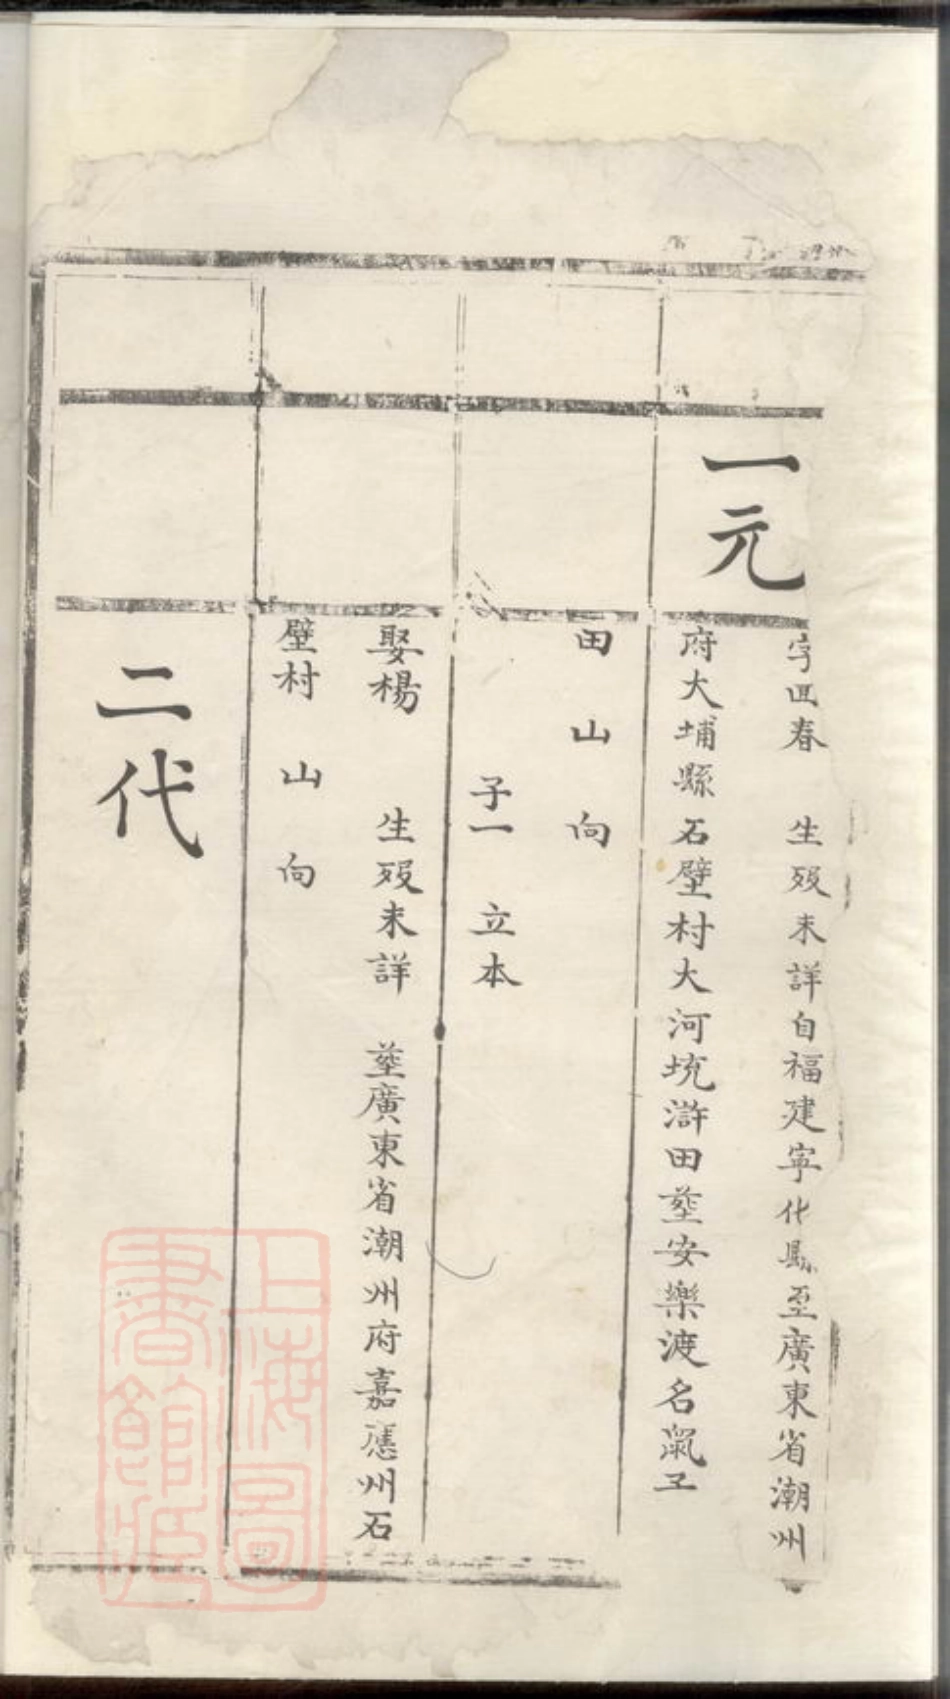 一元
字回春 生歿未詳自福建寧化縣至廣東省潮州
府大埔縣石壁村大河坑滸田塟安樂渡名鼠王
田山向
子一 立本
娶楊 生歿未詳 塟廣東省潮州府嘉應州石
壁村山向
二代
上海圖
書館藏